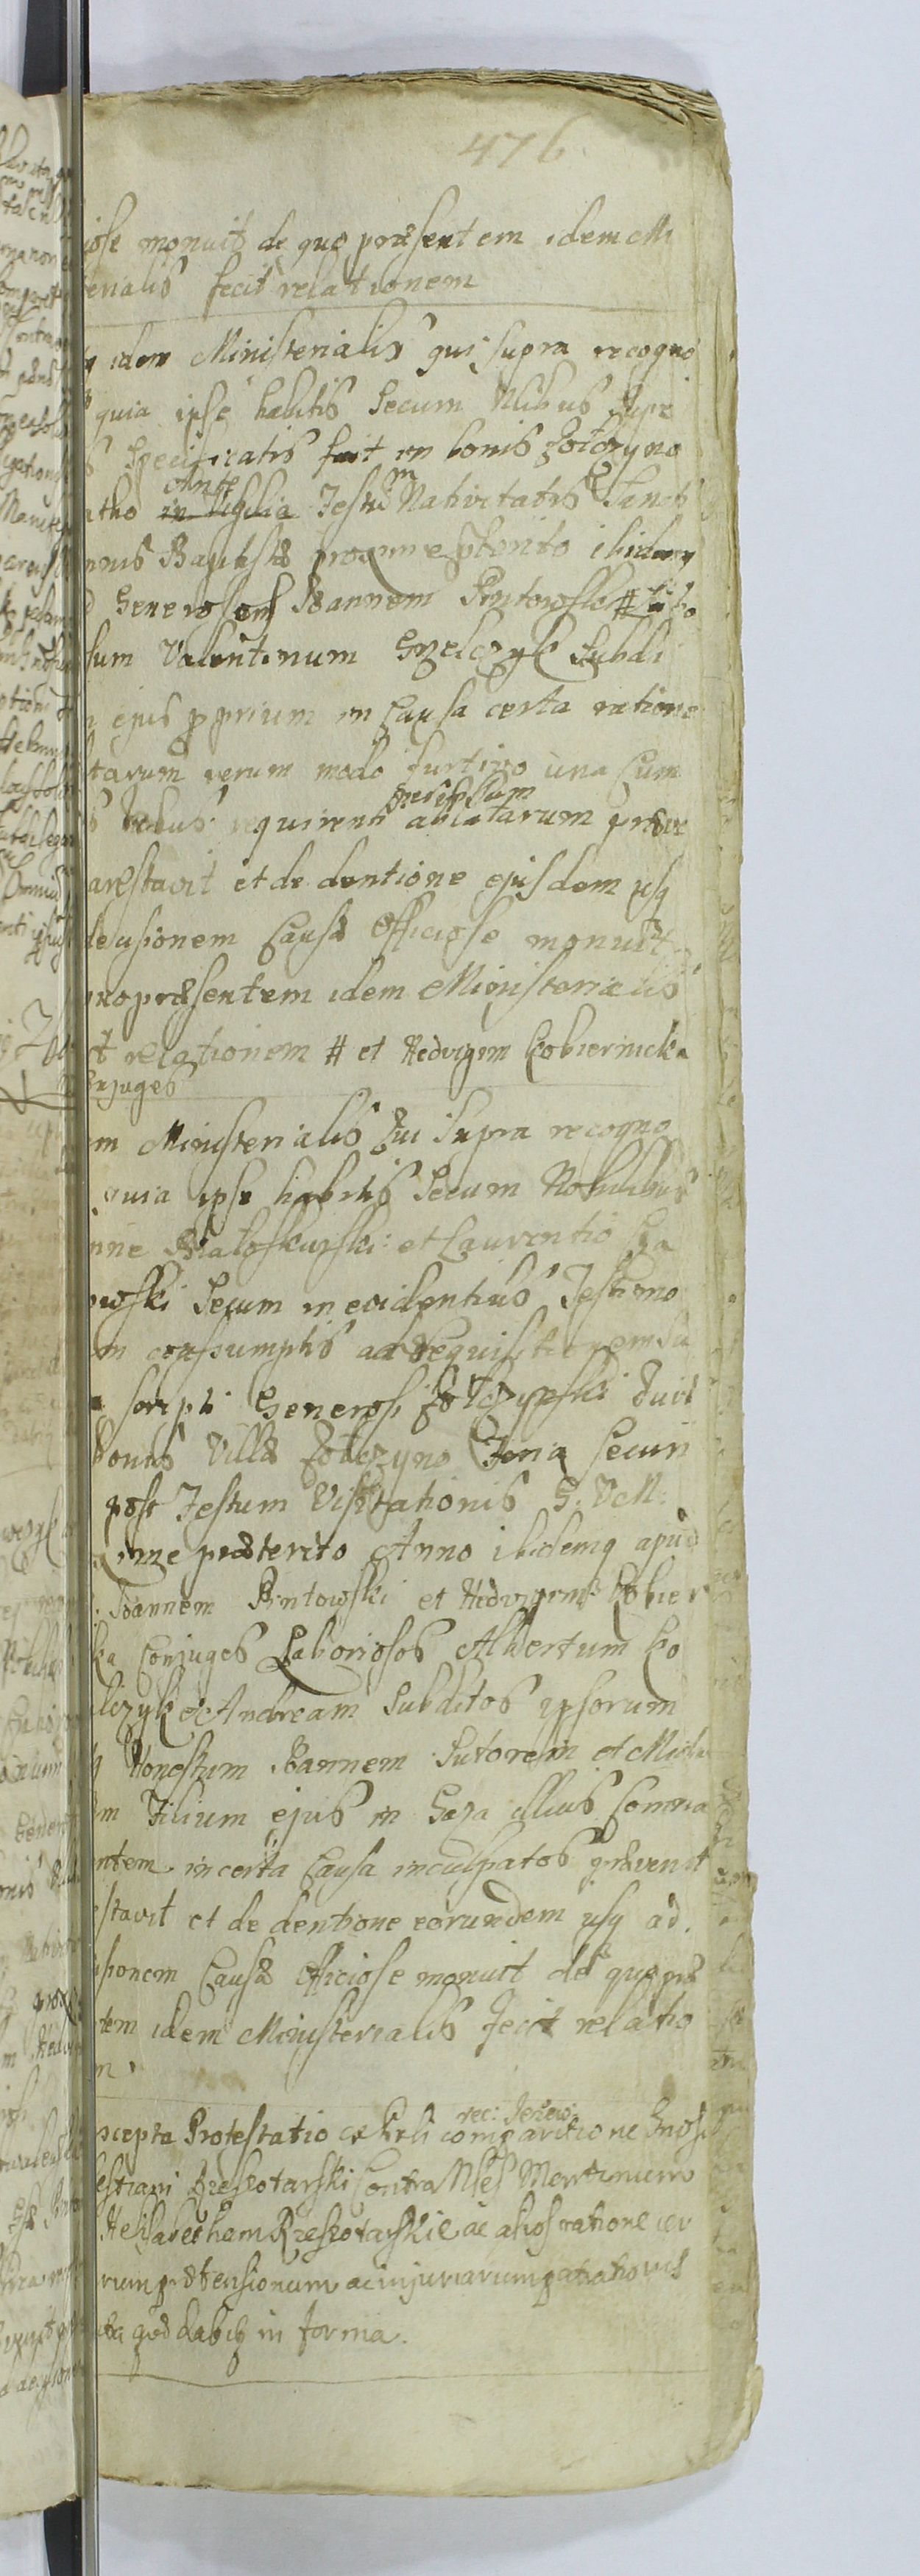 476
iose monuit de quo præsentem idem Mi
terialis fecit relationem
idem Ministerialis qui supra recogno
quia ipse habitis secum Nlibus supe
specificatis fuit in bonis Zołczyno
ante
in Vigilia Festum Nativitatis Sanct
nnis Baptistæ proxime præterito ibidemq
Generosem Joannem Pintowski #
sum Valentinum Gzelczyk Subdi
ejus pprium in Causa certa ratione
tarum rerum modo furtivo una Cum
per ipsum
rebus requirenti ablatarum præve
arestavit et de dentione ejusdem usq
decisionem Causæ Officiose monuit
quo præsentem idem Ministerialis
t relationem # et Hedvigem Kobiernicka
onjuges
m Ministerialis Qui Supra recogno
quia ipse habitis Secum Nobilibus
nne Białoskurski et Laurentio
owski Secum in evidentius Testimo
m assumptis ad requisitionem su
scripti Generosi Zołczynski fuit
bonis Villæ Zołczyno Feria Secun
post Festum Visitationis B. V. M.
ime præterito Anno ibidemq apud
Joannem Pintowski et Hedvigem Kobier
ka Conjuges Laboriosos Albertum Ko
lczyk et Andream Subditos ipsorum
Honestum Joannem Sutorem et Micha
m Filium ejus in Casa illius Comma
ntem in certa Causa inculpatos prævenit
stavit et de dentione eorundem usq ad
isionem Causæ Officiose monuit de quo præ
tem idem Ministerialis fecit relatio
m.
scepta Protestatio
comparitione
estiani Rzeszotarski Contra Nles Martinum
Helisabetham Rzeszotarskie ac alios ratione cer
rum prætensionum ac injuriarum patrationis
quod Labitz in forma.